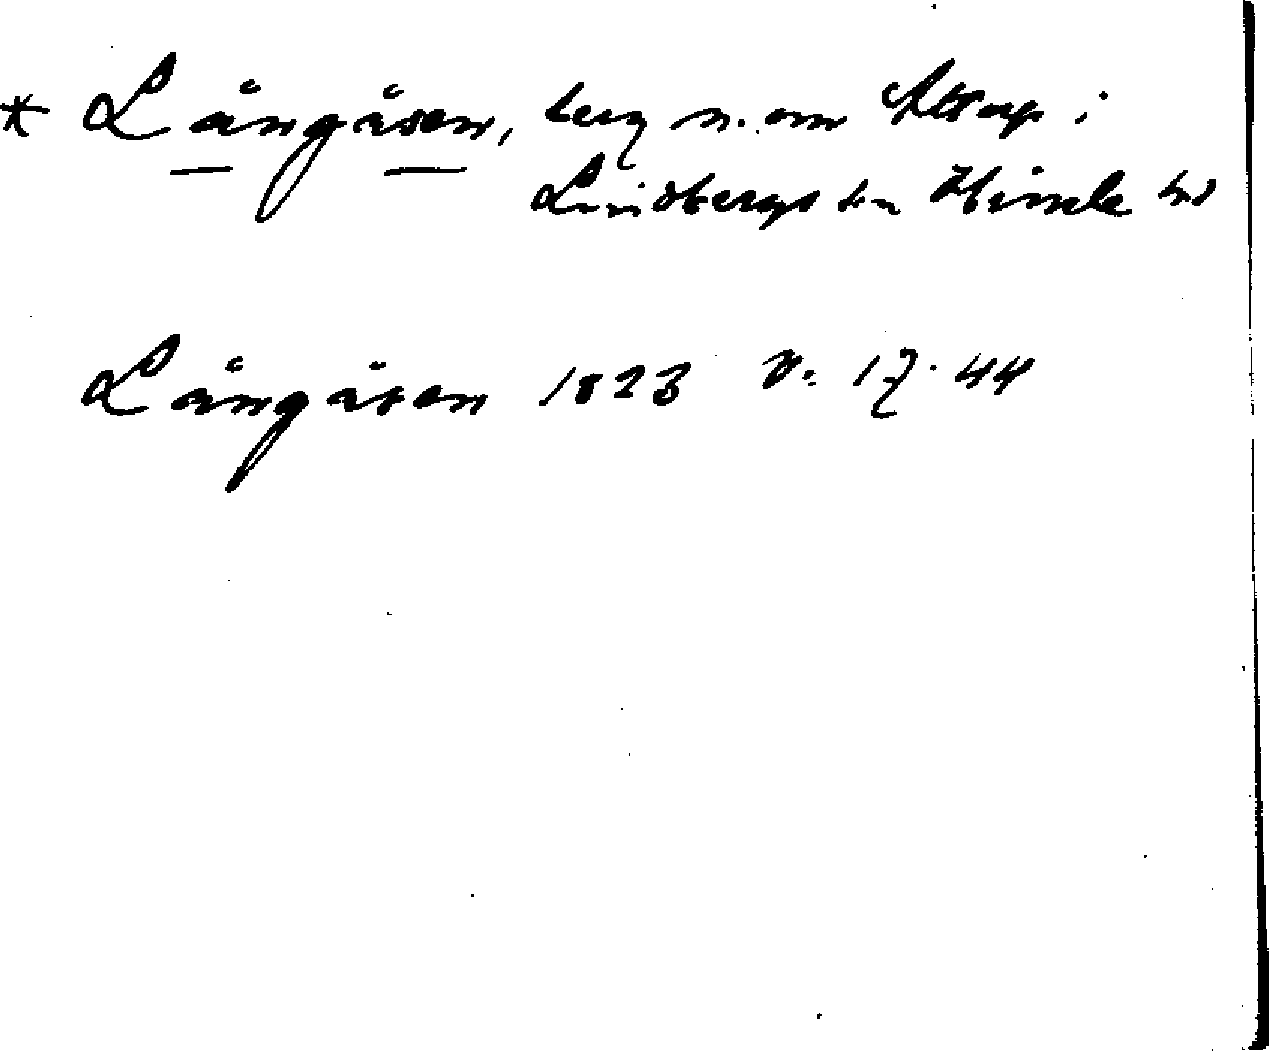 * Långåsen, berg n. om Attarp i
Lindbergs sn Himle hd
Långåsen 1823 V. 17.44